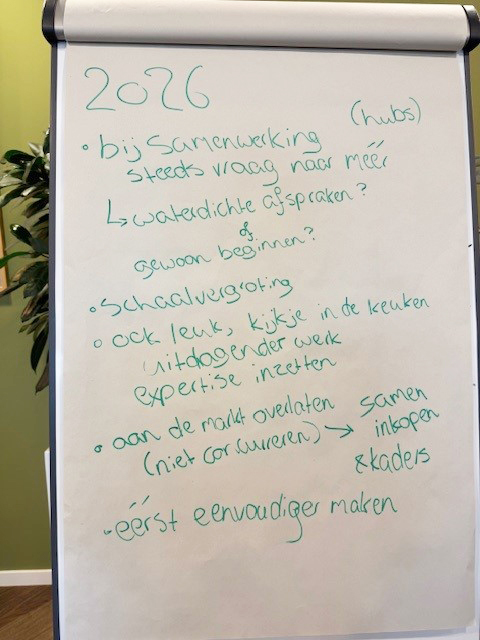 2026
(hubs)
• bij samenwerking
steeds vraag naar méér
↳ waterdichte afspraken?
of
gewoon beginnen?
• schaalvergroting
• ook leuk, kijkje in de keuken
uitdagender werk
expertise inzetten
• aan de markt overlaten
(niet concurreren) → samen
inkopen
& kaders
• éérst eenvoudiger maken